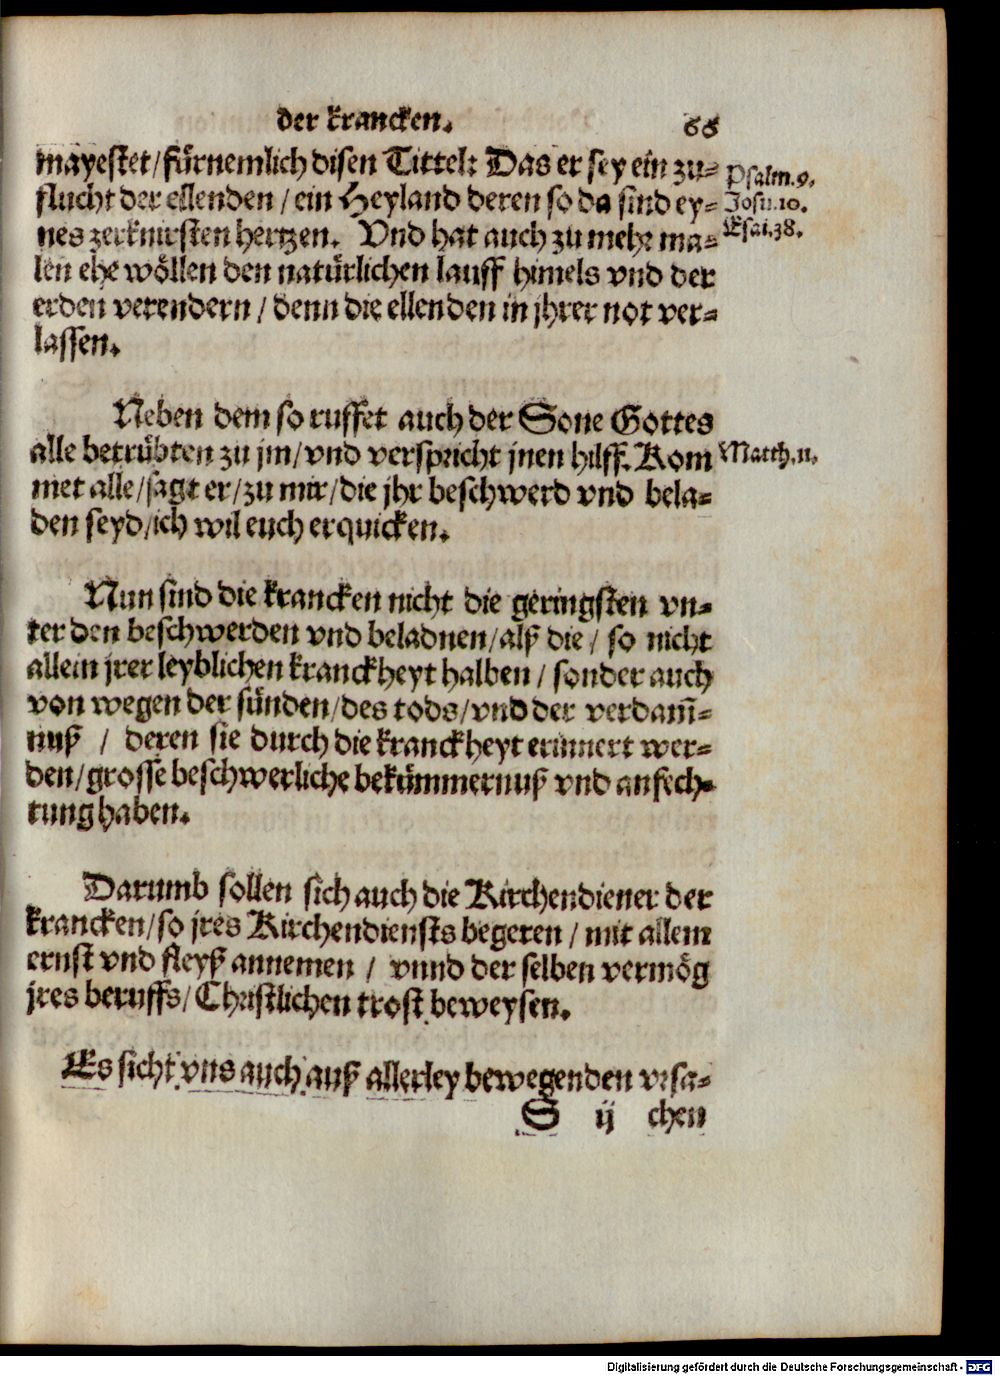 der krancken. 66
mayestet/fürnemlich disen Tittel: Das er sey ein zu-
flucht der ellenden / ein Heyland deren so da sind ey-
nes zerknirsten hertzen. Vnd hat auch zu mehr ma-
len ehe wöllen den natürlichen lauff himels vnd der
erden verendern / denn die ellenden in jhrer not ver-
lassen.
Psalm.9.
Josu.10.
Esai.38.
Neben dem so ruffet auch der Sone Gottes
alle betrübten zu jm/vnd verspricht jnen hilff. Kom
met alle/sagt er/zu mir/die jhr beschwerd vnd bela-
den seyd/ich wil euch erquicken.
Matth.11.
Nun sind die krancken nicht die geringsten vn-
ter den beschwerden vnd beladnen/alß die / so nicht
allein jrer leyblichen kranckheyt halben / sonder auch
von wegen der sünden/des tods/vnd der verdam̃-
nuß / deren sie durch die kranckheyt erinnert wer-
den/grosse beschwerliche bekümmernuß vnd anfech-
tung haben.
Darumb sollen sich auch die Kirchendiener der
krancken/so jres Kirchendiensts begeren / mit allem
ernst vnd fleyß annemen / vnnd der selben vermög
jres beruffs/Christlichen trost beweysen.
Es sicht vns auch auß allerley bewegenden vrsa-
S ij chen
Digitalisierung gefördert durch die Deutsche Forschungsgemeinschaft - DFG